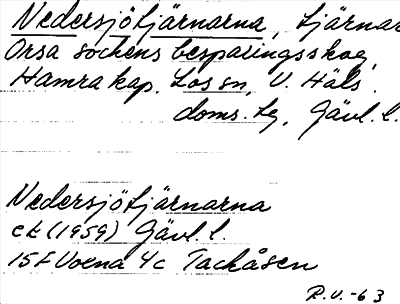 Nedersjötjärnarna, tjärnar
Orsa sockens besparingsskog,
Hamra kap. Los sn, V. Häls.
doms. tg, Gävl. l.
Nedersjötjärnarna
ek (1959) Gävl. l.
15F Voxna 4c Tackåsen
R.V.-63